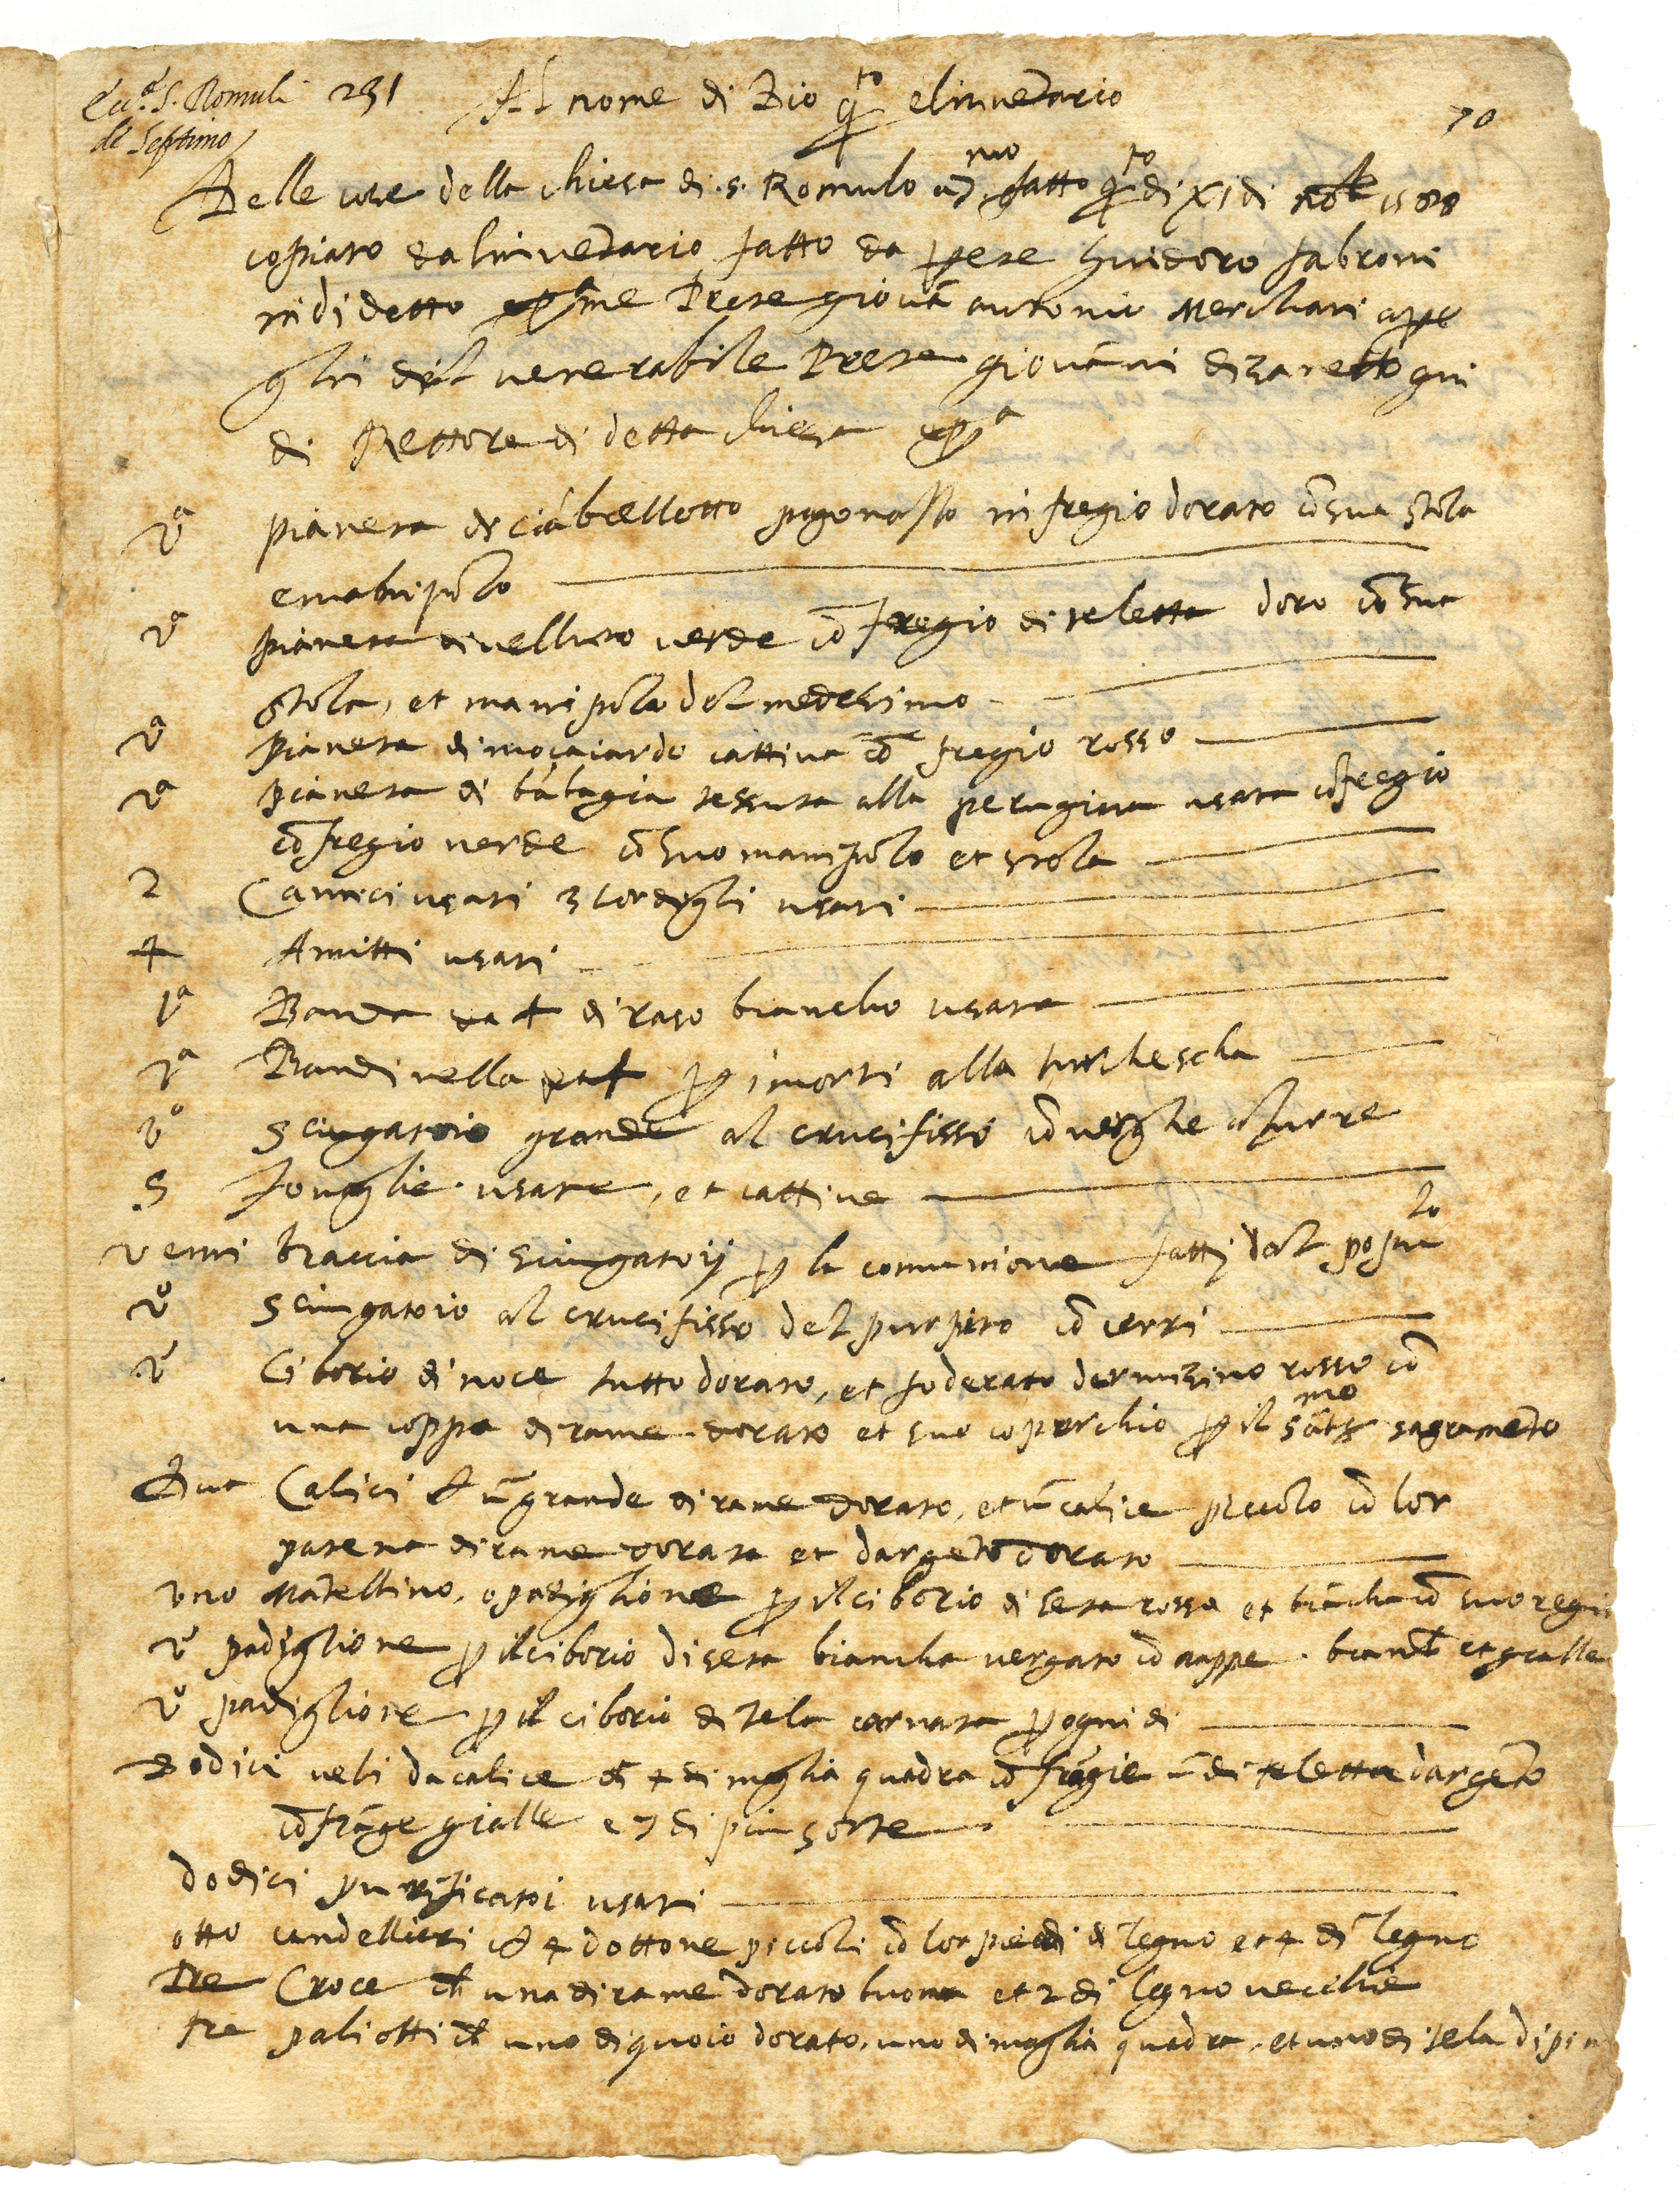 Ecc.ª S. Romuli 231 Al nome di Dio q.to elinuētario 70
de Septimo
Delle cose della chiesa di .S. Romulo a 7.mo fatto q.to di XI di 1588
copiato da linuētario fatto da prete Guidoro fabroni
in di detto me Prete giouā antonio Merchiari
gli del venerabile Prete giouāni di
di Rettore di detta chiesa
vª pianeta di ciābellotto pagonasso in fregio dorato cō sua stola
emanipolo
vª pianeta di velluto verde cō fregio di teletta doro cō sua
stola, et manipolo del medesimo
vª pianeta di mocaiardo cattiua cō fregio rosso
vª pianeta di bābagia tessuta alla perugina usata cōfregio
cō fregio verde cō suo manipolo et stola
2 Camici usati 3 cordigli usati
4 Amitti usati
1ª Banda da + di raso biancho usata
1ª Bandinella p imorti alla turchescha
vº sciugatoio grande al crucifisso cō verghe azurre
5 Touaglie usate, et cattiue
venti braccia di sciugatoij p la comunione fatti dal popu lo
vº sciugatoio al crucifisso del purpito cō cerri
vº Ciborio di noce tutto dorato, et foderato dermisino rosso cō
una coppa di rame dorato et suo coperchio p il sāt.mo sagramēto
Dua Calici cō ū grande di rame dorato, et ū calice piccolo cō lor
patena di rame dorata et dargēto dorato
vno Mātellino, o padiglione p il ciborio di seta rossa et biācha cō suo
vº padiglione p il ciborio di seta biancha vergato cō nappe . et gialle
vº padiglione p il ciborio di tela carnata p ogni di
Dodici veli da calice cō 4 di maglia quadra cō frāgie ū di teletta dargēto
cō frāge gialle e 7 di piu sorte
dodici purificatoi usati
otto candellieri cō 4 dottone piccoli cō lor piedi di legno et 4 di legno
Tre Croce cō una di rame dorato buona et 2 di legno vecchie
tre paliotti cō uno di quoio dorato, uno di maglia quadra, et uno di tela dipin